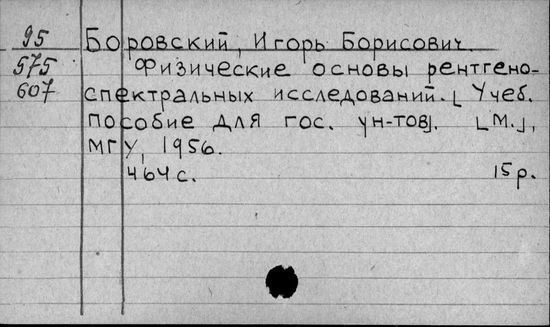 95 Боровский, Игорь Борисович.
575 Физические основы рентгено-
607 спектральных исследований. [Учеб.
пособие для гос. ун-тов]. [М.],
МГУ, 1956.
464 с. 15 р.